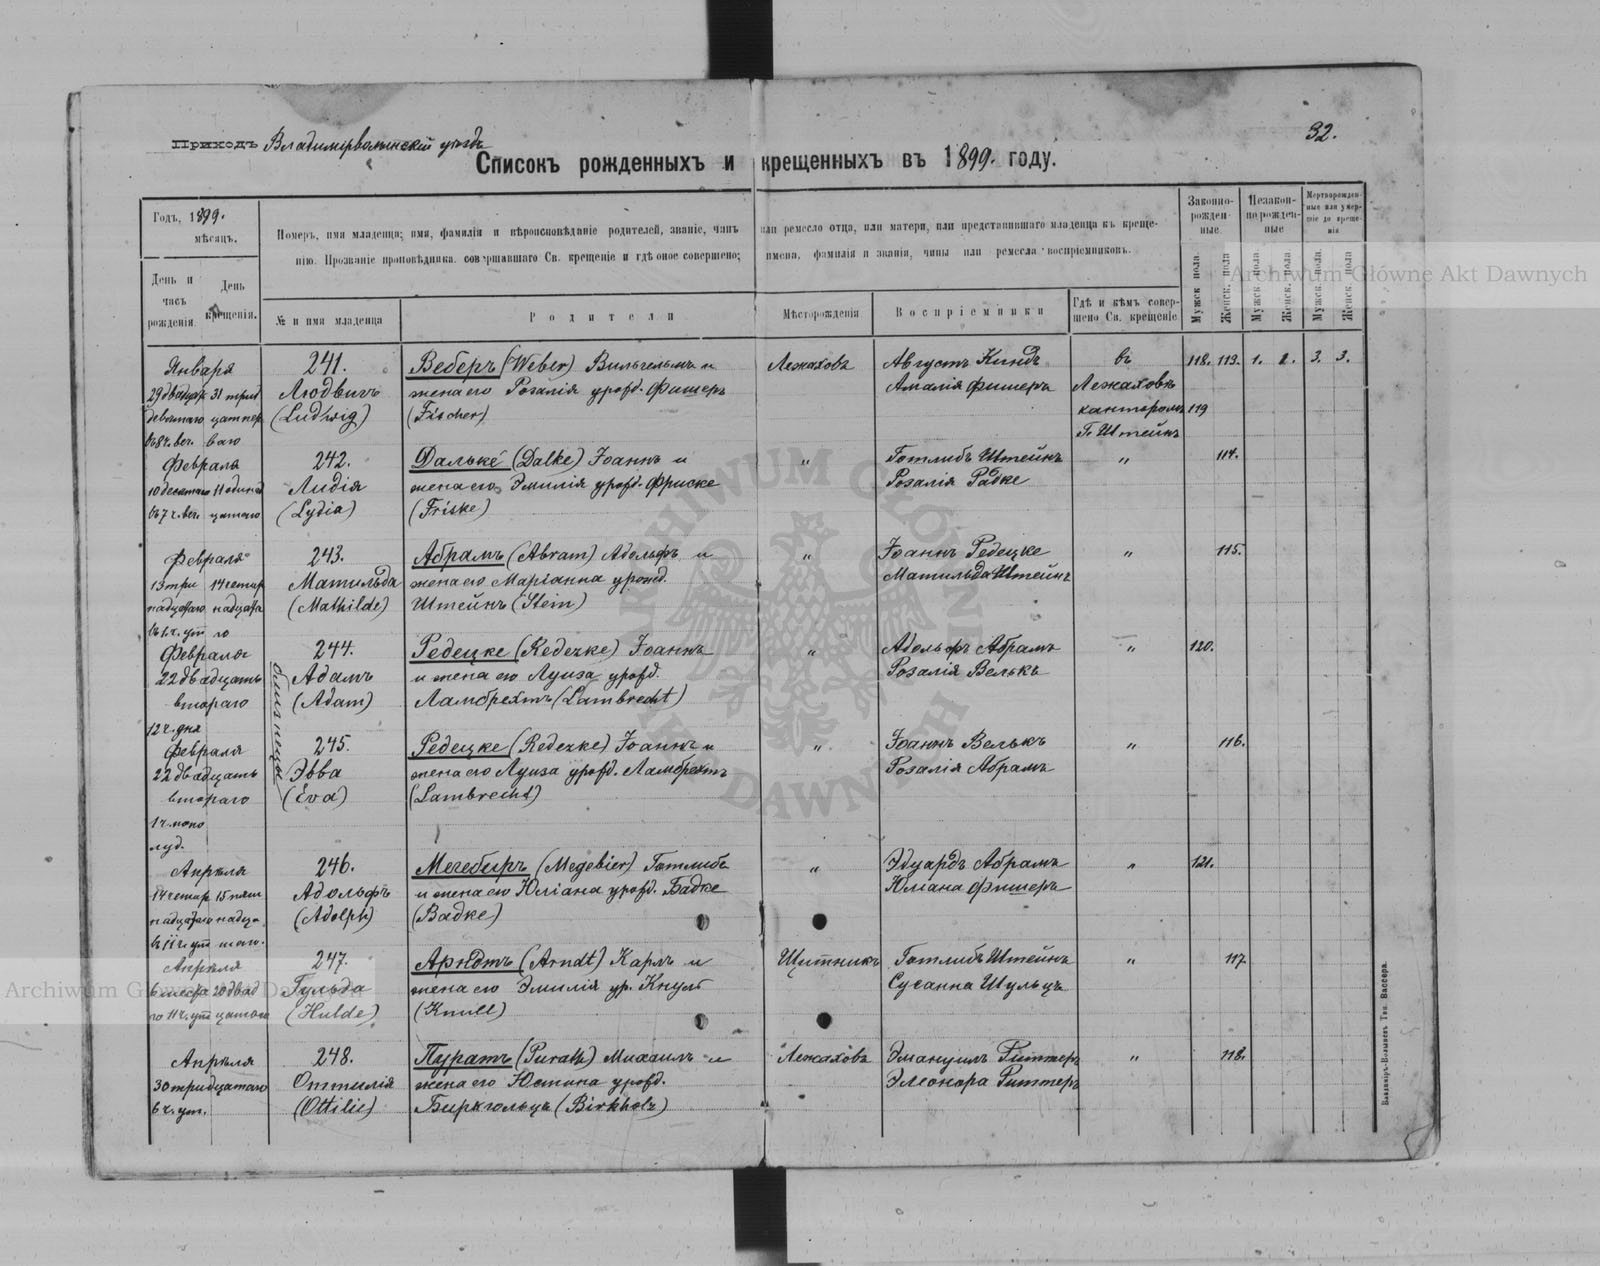 Приходъ Владимірволынскій уѣздъ
32.
Списокъ рожденныхъ и крещенныхъ въ 1899. году.
Годъ, 1899.
мѣсяцъ.
День и часъ рожденія.
День крещенія.
Номеръ, имя младенца; имя, фамилія и вѣроисповѣданіе родителей, званіе, чинъ или ремесло отца, или матери, или представившаго младенца къ креще-
нію. Прозваніе проповѣдника, совершавшаго Св. крещеніе и гдѣ оное совершено; имена, фамилія и званія, чины или ремесла воспріемниковъ.
№ и имя младенца
Родители
Мѣсторожденія
Воспріемники
Гдѣ и кѣмъ совер-
шено Св. крещеніе
Законно-
рожден-
ные
Незакон-
норожден-
ные
Мертворожден-
ные или умер-
шіе до креще-
нія
Мужск. пола
Женск. пола
Мужск. пола
Женск. пола
Мужск. пола
Женск. пола
Января 241. Веберъ (Weber) Вильгельмъ и Лежаховъ Августъ Киндъ въ 118. 113. 1. 2. 3. 3.
Людвигъ жена его Розалія урожд. Фишеръ Амалія Фишеръ Лежаховѣ
(Ludwig) (Fischer) канторомъ 119
въ 8 ч. веч. ваго Г. Штейнъ
Февраля 242. Дальке (Dalke) Іоаннъ и " Готлибъ Штейнъ " 114.
10 десятаго 11 одинад Лидія жена его Эмилія урожд. Фриске Розалія Радке
въ 7 ч. веч. цатаго (Lydia) (Friske)
Февраля 243. Абрамъ (Abram) Адольфъ и " Іоаннъ Редецке " 115.
13 три 14 четыр Матильда жена его Маріанна урожд. Матильда Штейнъ
надцатаго надцата (Mathilde) Штейнъ (Stein)
въ 1 ч. ут го
Февраля 244. Редецке (Redezke) Іоаннъ " Адольфъ Абрамъ " 120.
22 двадцать Адамъ и жена его Луиза урожд. Розалія Велькъ
втораго (Adam) Ламбрехтъ (Lambrecht)
12 ч. дня
близнецы
Февраля 245. Редецке (Redezke) Іоаннъ и " Іоаннъ Велькъ " 116.
22 двадцать Эвва жена его Луиза урожд. Ламбрехтъ Розалія Абрамъ
втораго (Eva) (Lambrecht)
1 ч. попо
луд.
Апрѣля 246. Мегебиръ (Megebier) Готлибъ " Эдуардъ Абрамъ " 121.
14 четыр 15 пят Адольфъ и жена его Юліана урожд. Бадке Юліана Фишеръ
надцатаго надца- (Adolph) (Badke)
въ 11 ч. ут таго.
Апрѣля 247. Арндтъ (Arndt) Карлъ и Щитникъ Готлибъ Штейнъ " 117
20 двад Гульда жена его Эмилія ур. Кнулъ Сусанна Шульцъ
го 11 ч. ут цатаго (Hulde) (Knull)
Апрѣля 248. Пуратъ (Purath) Михаилъ и Лежаховъ Эмануилъ Риттеръ " 118.
30 тридцатаго Оттилія жена его Юстина урожд. Элеонора Риттеръ
6 ч. ут. (Ottilie) Биркгольцъ (Birkholz)
Владиміръ-Волынскъ Тип. Вассера.
Archiwum Główne Akt Dawnych
Archiwum Główne Akt Dawnych
ARCHIWUM GŁÓWNE AKT DAWNYCH